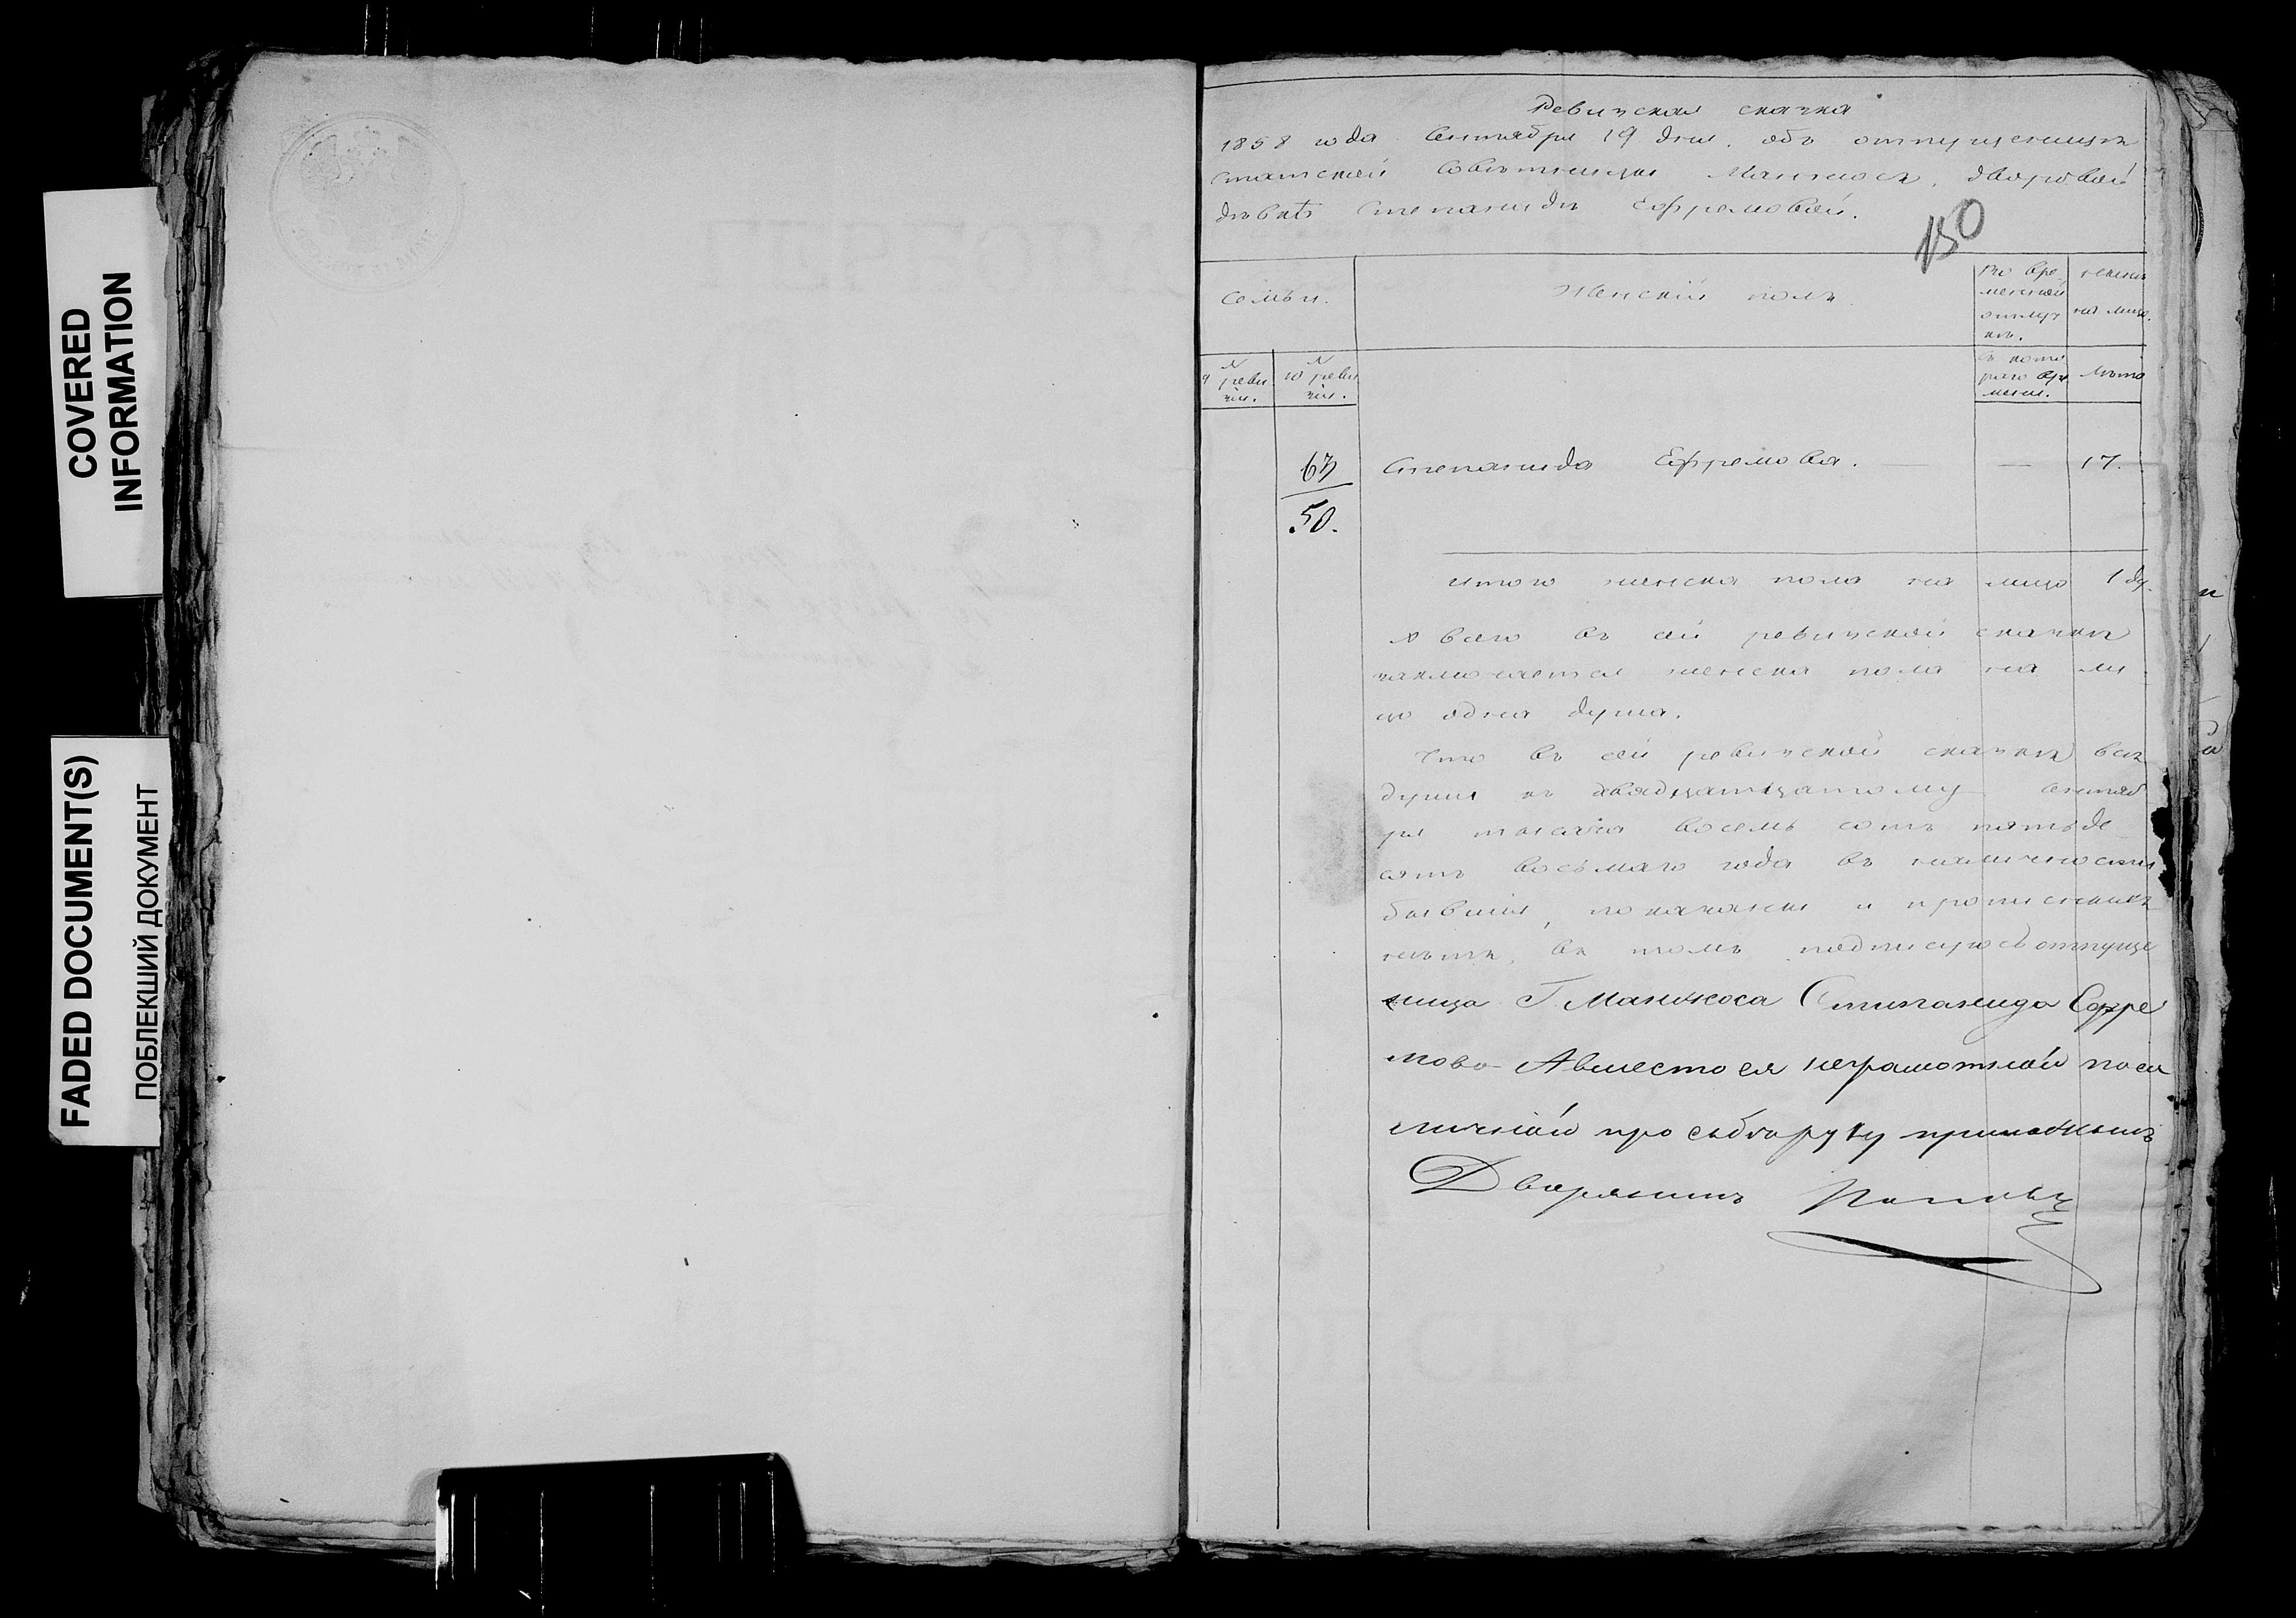 COVERED
INFORMATION
FADED DOCUMENT(S)
ПОБЛЕКШИЙ ДОКУМЕНТ
Ревизская сказка
1858 года Сентября 19 дня. объ отпущеницѣ
статской Совѣтницы Манжосъ, дворовой
дѣвкѣ Степанидѣ Ефремовой.
150
Семьи.
Женскій полъ.
Во вре-
менной
отлуч
кѣ.
женск
на лицо.
№
9 реви
зіи.
№
10 реви
зіи.
Съ кото
раго вре
мени.
Лѣта
63
50.
Степанида Ефремова. — 17.
Итого женска пола на лицо 1 ду.
А всего въ сей ревизской сказкѣ
заключается женска пола на ли
цо одна душа.
Что въ сей ревизской сказкѣ всѣ
души къ двадцатицатому Сентяб
ря тысяча восемь сотъ пятьде
сятъ восьмаго года въ наличности
бывшія, показаны и прописныхъ
нѣтъ, въ томъ подписуюсь отпуще
ница Г Манжоса Стипанида Ефре
мова А вместо ея неграмотной по ея
личной прозьбѣ руку приложилъ
Дворянинъ